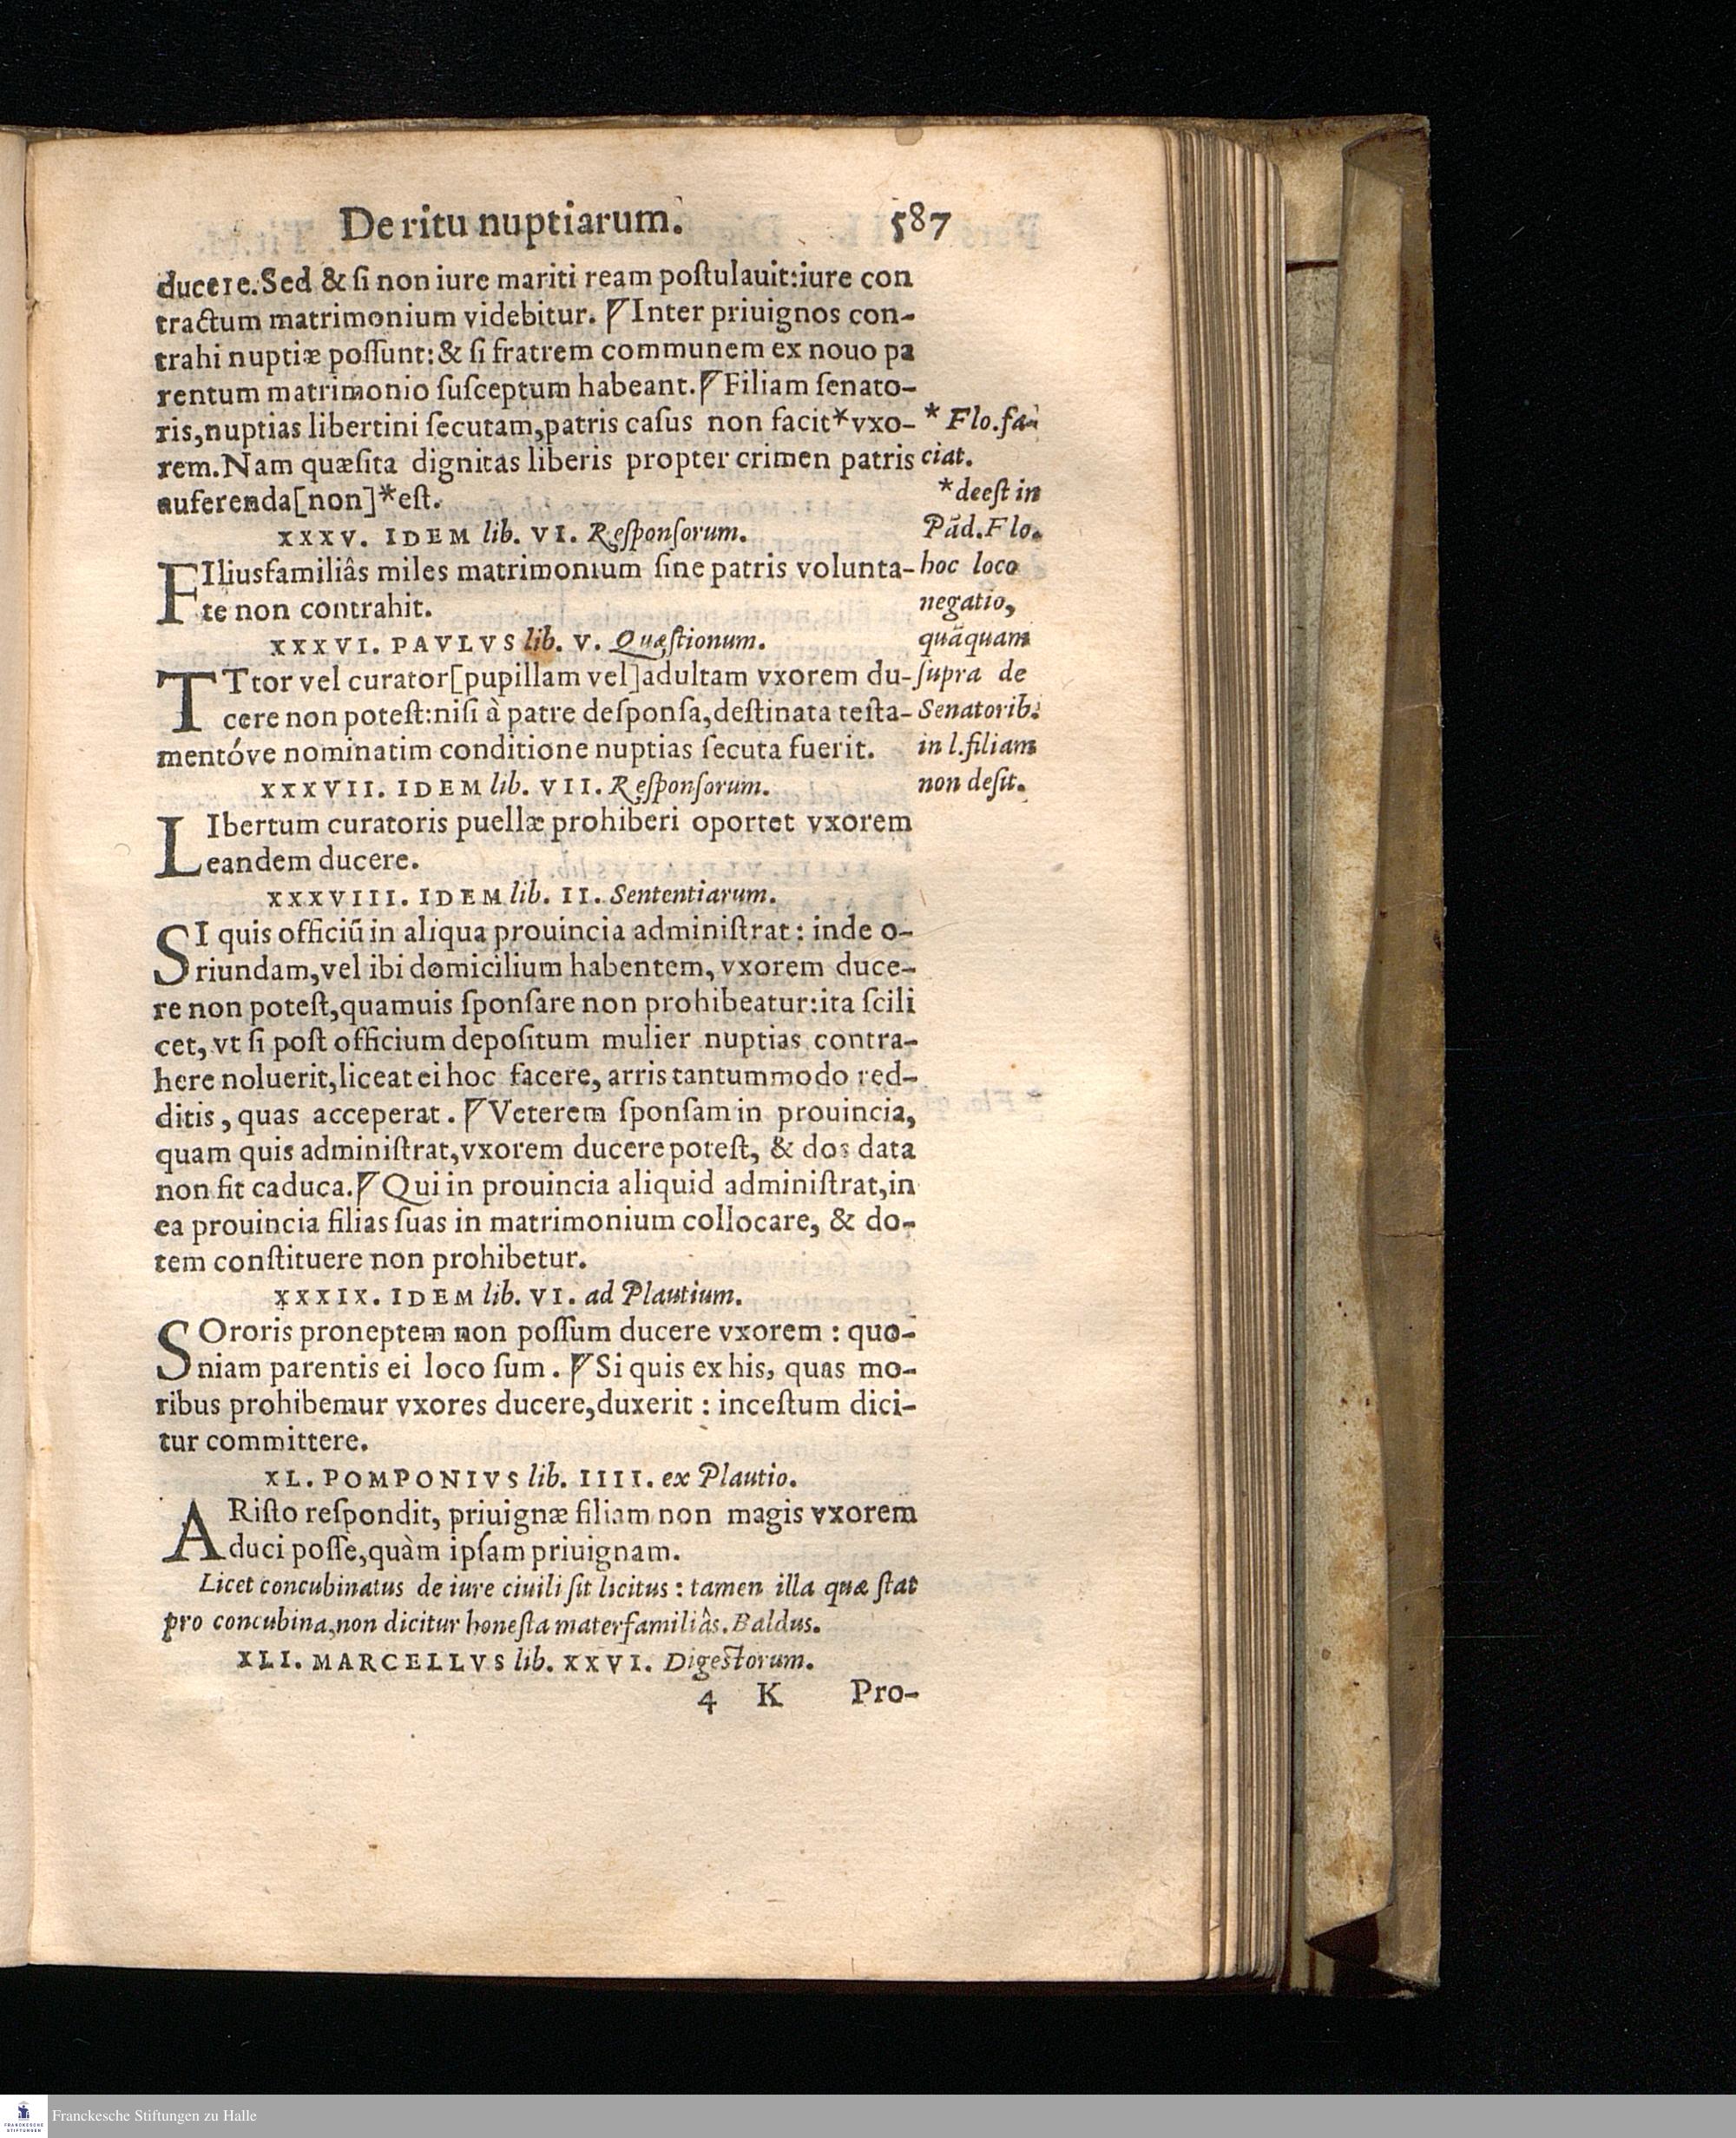 De ritu nuptiarum. 587
ducere. Sed & ſi non iure mariti ream poſtulauit: iure con
tractum matrimonium videbitur. ¶ Inter priuignos con-
trahi nuptiæ poſſunt: & ſi fratrem communem ex nouo pa
rentum matrimonio ſuſceptum habeant. ¶ Filiam ſenato-
ris, nuptias libertini ſecutam, patris caſus non facit * vxo-
rem. Nam quæſita dignitas liberis propter crimen patris
auferenda [non] * eſt.
XXXV. IDEM lib. VI. Reſponſorum.
FIliusfamiliâs miles matrimonium ſine patris volunta-
te non contrahit.
XXXVI. PAVLVS lib. V. Quæſtionum.
TTtor vel curator [pupillam vel] adultam vxorem du-
cere non poteſt: niſi à patre deſponſa, deſtinata teſta-
mentóve nominatim conditione nuptias ſecuta fuerit.
XXXVII. IDEM lib. VII. Reſponſorum.
LIbertum curatoris puellæ prohiberi oportet vxorem
eandem ducere.
XXXVIII. IDEM lib. II. Sententiarum.
SI quis officiũ in aliqua prouincia adminiſtrat: inde o-
riundam, vel ibi domicilium habentem, vxorem duce-
re non poteſt, quamuis ſponſare non prohibeatur: ita ſcili
cet, vt ſi poſt officium depoſitum mulier nuptias contra-
here noluerit, liceat ei hoc facere, arris tantummodo red-
ditis, quas acceperat. ¶ Veterem ſponſam in prouincia,
quam quis adminiſtrat, vxorem ducere poteſt, & dos data
non fit caduca. ¶ Qui in prouincia aliquid adminiſtrat, in
ea prouincia filias ſuas in matrimonium collocare, & do-
tem conſtituere non prohibetur.
XXXIX. IDEM lib. VI. ad Plautium.
SOroris proneptem non poſſum ducere vxorem: quo-
niam parentis ei loco ſum. ¶ Si quis ex his, quas mo-
ribus prohibemur vxores ducere, duxerit: inceſtum dici-
tur committere.
XL. POMPONIVS lib. IIII. ex Plautio.
ARiſto reſpondit, priuignæ filiam non magis vxorem
duci poſſe, quàm ipſam priuignam.
Licet concubinatus de iure ciuili ſit licitus: tamen illa quæ ſtat
pro concubina, non dicitur honeſta materfamiliâs. Baldus.
XLI. MARCELLVS lib. XXVI. Digeſtorum.
4 K Pro-
* Flo. fa-
ciat.
* deeſt in
Pãd. Flo.
hoc loco
negatio,
quãquam
ſupra de
Senatorib.
in l. filiam
non deſit.
Franckesche Stiftungen zu Halle
FRANCKESCHE
STIFTUNGEN